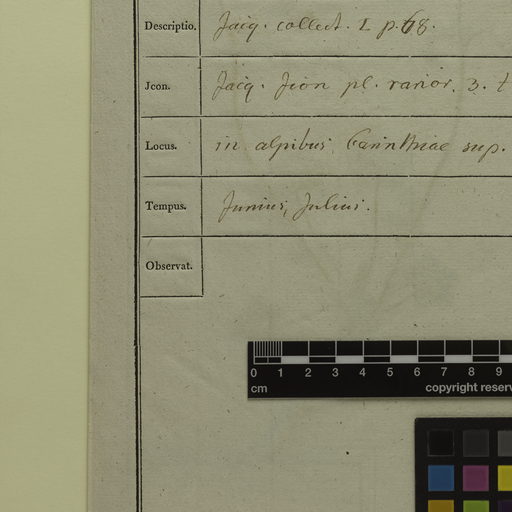 Descriptio. Jacq. collect. I p. 68.
Jcon. Jacq. Jcon pl. rarior. 3. t
Locus. in alpibus Carinthiae sup.
Tempus. Junius, Julius.
Observat.
0 1 2 3 4 5 6 7 8 9
cm copyright reserv